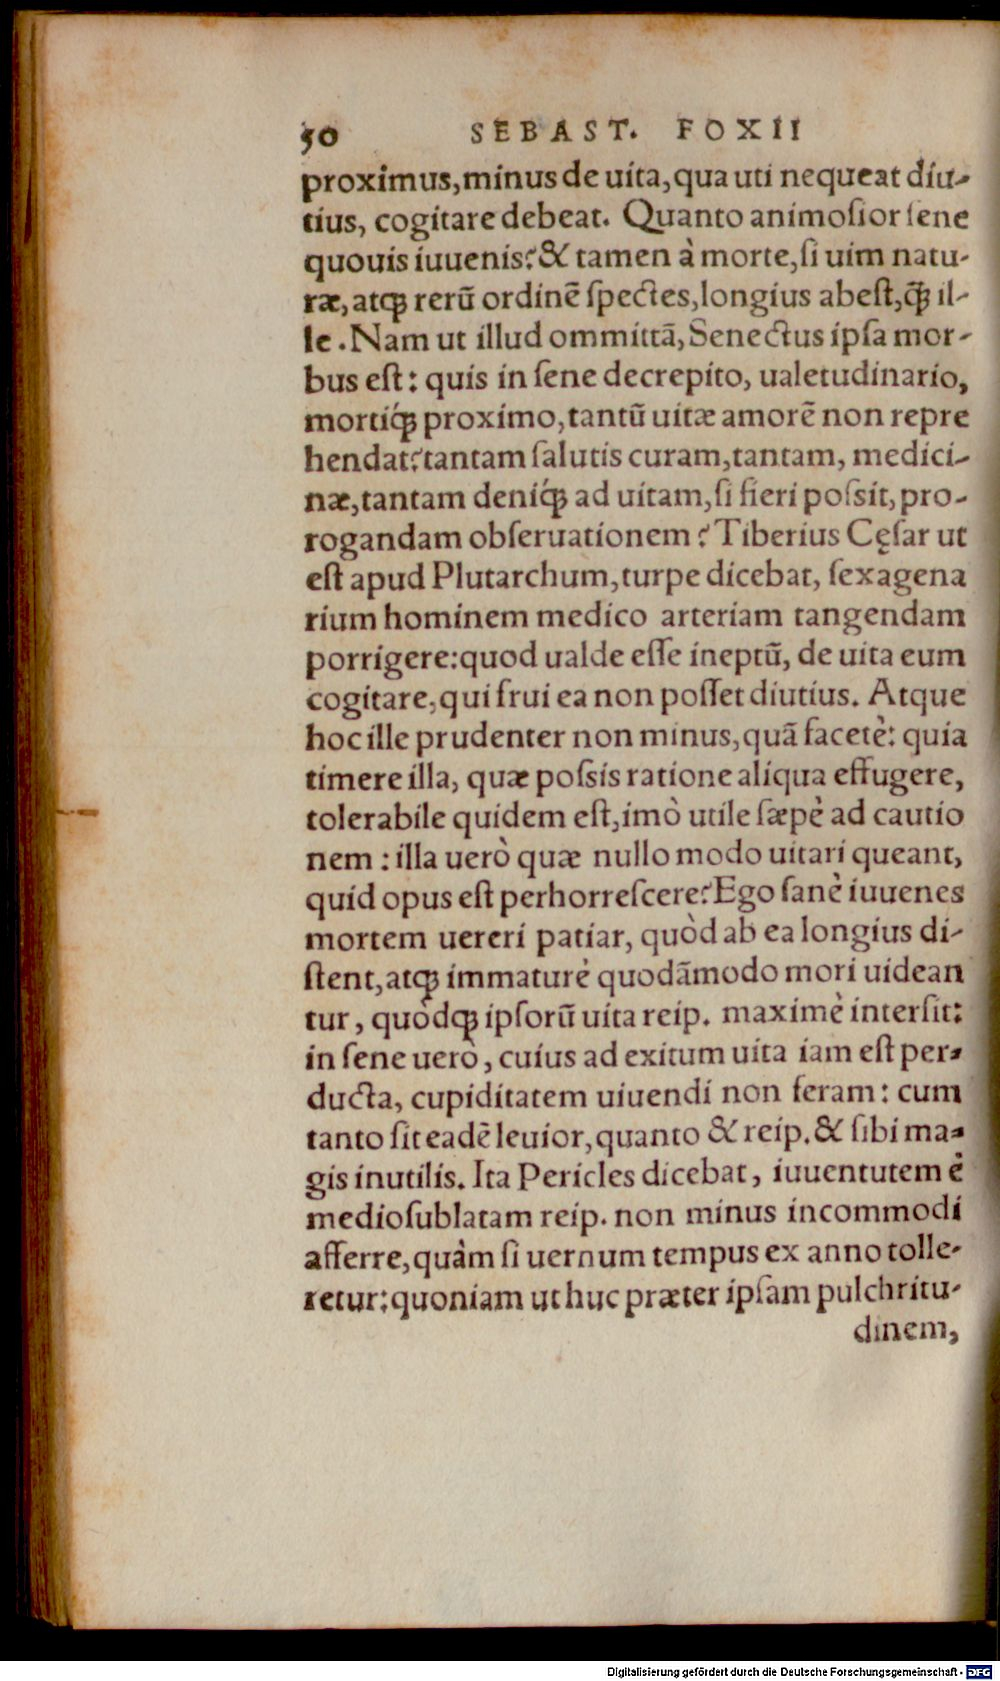 50 SEBAST. FOXII
proximus, minus de uita, qua uti nequeat diu-
tius, cogitare debeat. Quanto animoſior ſene
quouis iuuenis? & tamen à morte, ſi uim natu-
ræ, atq́ꝫ rerū ordinē ſpectes, longius abeſt, q̃ꝫ il-
le. Nam ut illud ommittā, Senectus ipſa mor-
bus eſt: quis in ſene decrepito, ualetudinario,
mortiq́ꝫ proximo, tantū uitæ amorē non repre
hendat? tantam ſalutis curam, tantam, medici-
næ, tantam deniq́ꝫ ad uitam, ſi fieri poſsit, pro-
rogandam obſeruationem? Tiberius Cęſar ut
eſt apud Plutarchum, turpe dicebat, ſexagena
rium hominem medico arteriam tangendam
porrigere: quod ualde eſſe ineptū, de uita eum
cogitare, qui frui ea non poſſet diutius. Atque
hoc ille prudenter non minus, quā facetè: quia
timere illa, quæ poſsis ratione aliqua effugere,
tolerabile quidem eſt, imò utile ſæpè ad cautio
nem: illa uerò quæ nullo modo uitari queant,
quid opus eſt perhorreſcere? Ego ſanè iuuenes
mortem uereri patiar, quòd ab ea longius di-
ſtent, atqꝫ immaturè quodāmodo mori uidean
tur, quòdqꝫ ipſorū uita reip. maximè interſit:
in ſene uerò, cuius ad exitum uita iam eſt per-
ducta, cupiditatem uiuendi non feram: cum
tanto ſit eadē leuior, quanto & reip. & ſibi ma-
gis inutilis. Ita Pericles dicebat, iuuentutem è
medio ſublatam reip. non minus incommodi
afferre, quàm ſi uernum tempus ex anno tolle-
retur: quoniam ut huc præter ipſam pulchritu-
dinem,
Digitalisierung gefördert durch die Deutsche Forschungsgemeinschaft - DFG